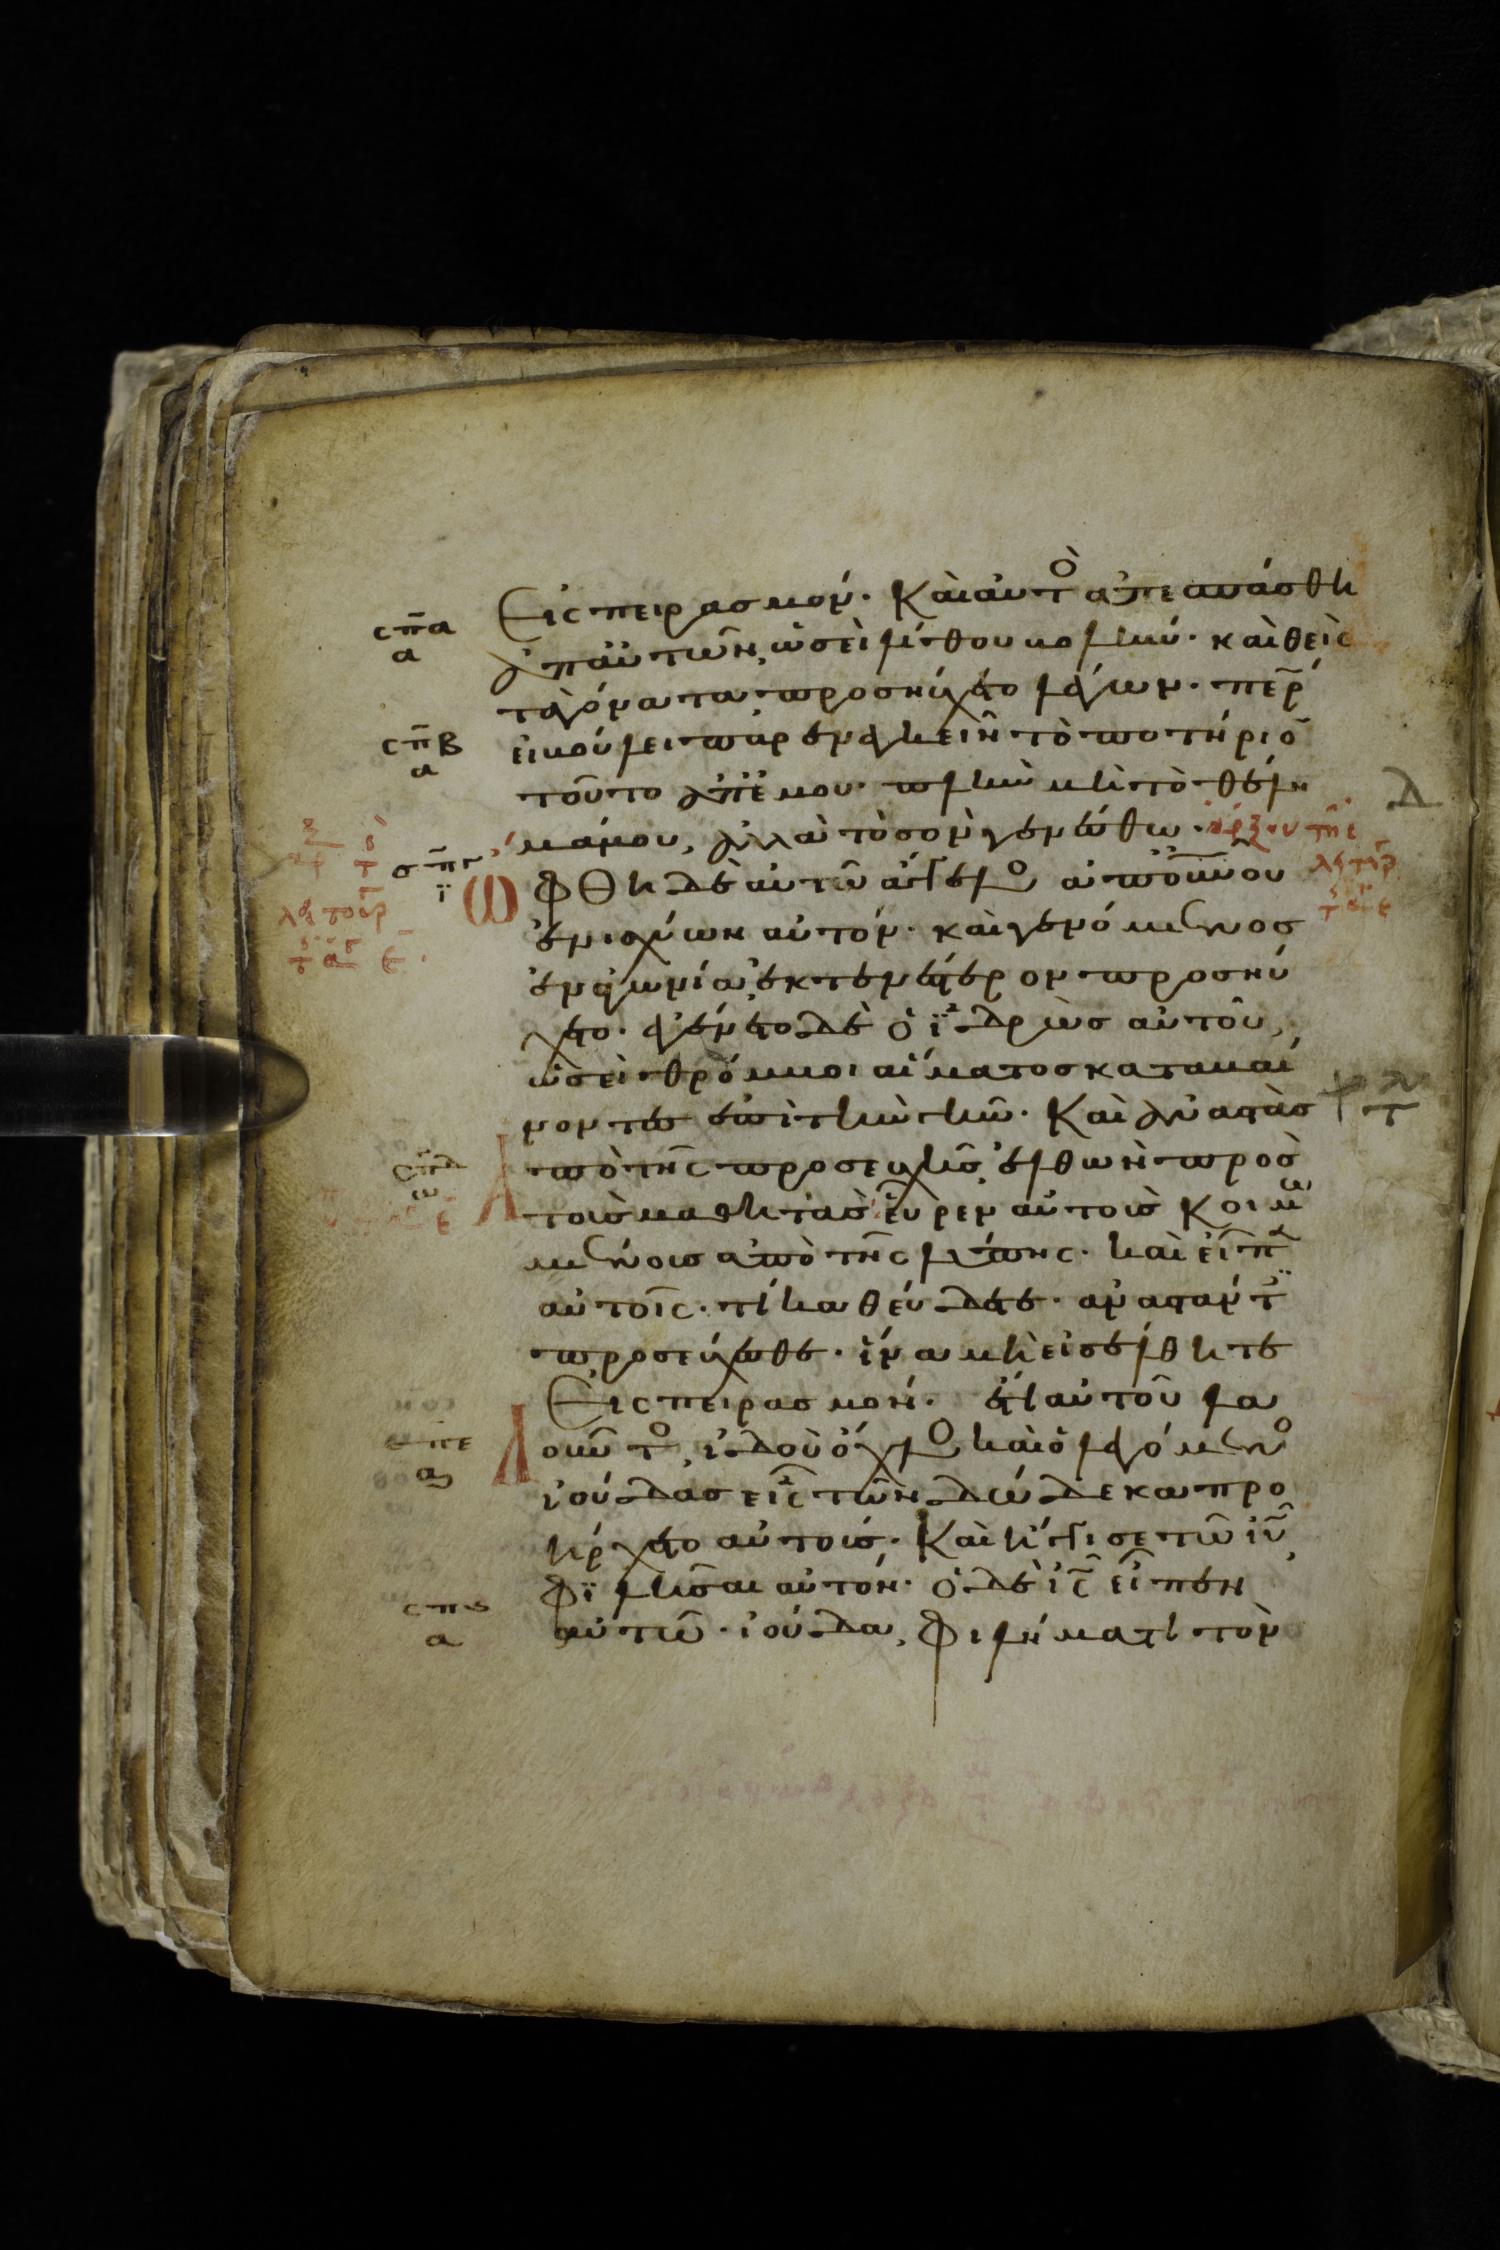 Εἰς πειρασμόν· Καὶ αὐτὸ ἀπεσπάσθη
ἀπ αὐτῶν, ὡσεὶ λίθου βολήν· καὶ θεὶς
τὰ γόνατα, προσηύχετο λέγων· περ
εἰ βούλει παρενεγκεῖν τὸ ποτήριο
τοῦτο ἀπ ἐμου· πλὴν μὴ τὸ θέλη
μά μου, ἀλλὰ τὸ σὸν γενέσθω·
ὤφθη δὲ αὐτῶ ἄγγελο ἀπ οὐνου
ἐνισχύων αὐτόν· καὶ γενόμενος
ἐν ἀγωνία, ἐκτενέστερον προσηύ
χετο· ἐγένετο δὲ ὁ ἱδρὼς αὐτοῦ,
ὡσεὶ θρόμβοι αἵματος καταβαί
νοντες ἐπὶ τὴν γῆν· Καὶ ἀναστὰς
ἀπὸ τῆς προσευχῆς, ἐλθὼν πρὸς
τοὺς μαθητὰς εὗρεν αὐτοὺς κοιμω
μένους ἀπὸ τῆς λύπης· καὶ εἶπ
αὐτοῖς· τί καθεύδετε· ἀναστάντ
προσεύχεσθε· ἵνα μὴ εἰσέλθητε
Εἰς πειρασμόν· ἔτι αὐτοῦ λα
λοῦντο, ἰδοὺ ὄχλο, καὶ ὁ λεγόμενο
ἰούδας εἷς τῶν δώδεκα προ
ήρχετο αὐτούς· Καὶ ἤγγισε τῶ ιυ
φιλῆσαι αὐτόν· ὁ δὲ ις εἶπεν
αὐτῶ· ἰούδα, φιλήματι τὸν
σπα
α
σπβ
α
σπγ
ι
σπδ
σπε
α
σπς
α